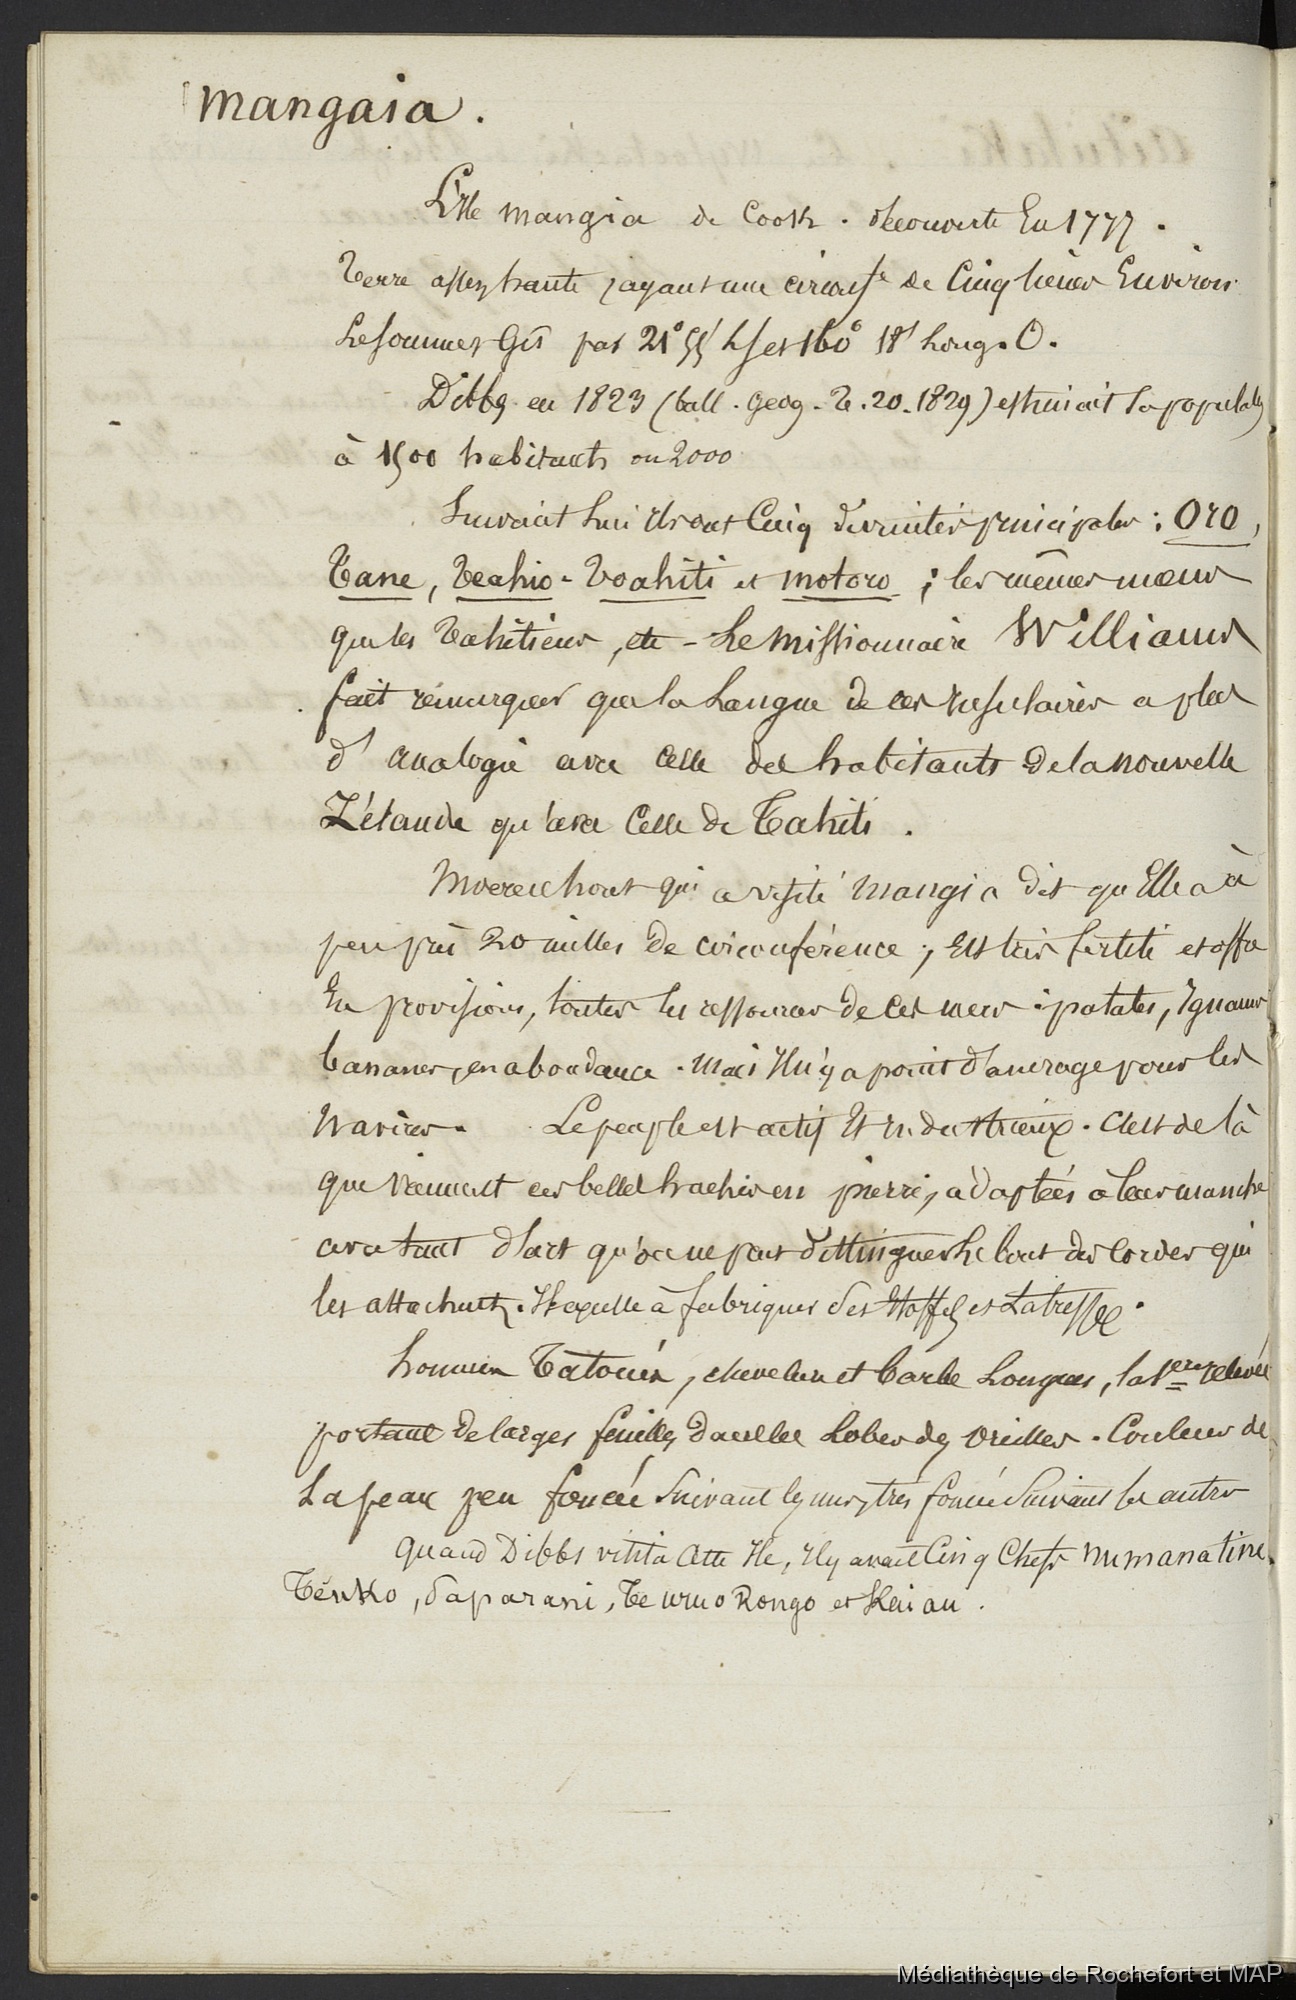 Mangaia.
L'Ile Mangia de Cook. découverte En 1777.
Terre assez haute, ayant une circonfce de Cinq lieües Environ
Le sommet Gît par 21° 55' L S et 160° 18' Long. O.
Dibbs en 1823 (bull. geog. T. 20. 1829) estimait la populaton
à 1500 habitants ou 2000
Suivant lui Ils ont Cinq divinités principales : Oro,
Tane, Teahio - Voahiti et Motoro ; les mêmes mœurs
que les Tahitiens, etc - Le Missionnaire Williams
fait remarquer que la Langue de ces Insulaires a plus
d'analogie avec celle des habitants de la Nouvelle
Zélande qu'avec Celle de Tahiti.
Moerenhout qui a visité Mangia dit qu'Elle a à
peu près 20 milles de circonférence ; Est très fertile et offre
En provisions, toutes les ressources de ces mers : patates, Ignames
bananes, en abondance. Mais Il n'y a point d'ancrage pour les
Navires. Le peuple est actif Et Industrieux. C'est de là
que viennent ces belles haches en pierre, adaptées à leur manche
avec tant d'art qu'on ne peut distinguer Le bout des cordes qui
les attachent. Il excelle à fabriquer des Etoffes et La tresse.
hommes Tatoués, chevelure et barbe Longues, la 1ere relevée
portant de larges feuilles dans les Lobes des Oreilles. Couleur de
La peau peu foncée Suivant les uns, très foncée Suivant les autres
Quand Dibbs visita Cette Ile, Il y avait Cinq Chefs Numanatine.
Téuko, Saparani, Te uruo Rongo et Kaiau.
Médiathèque de Rochefort et MAP